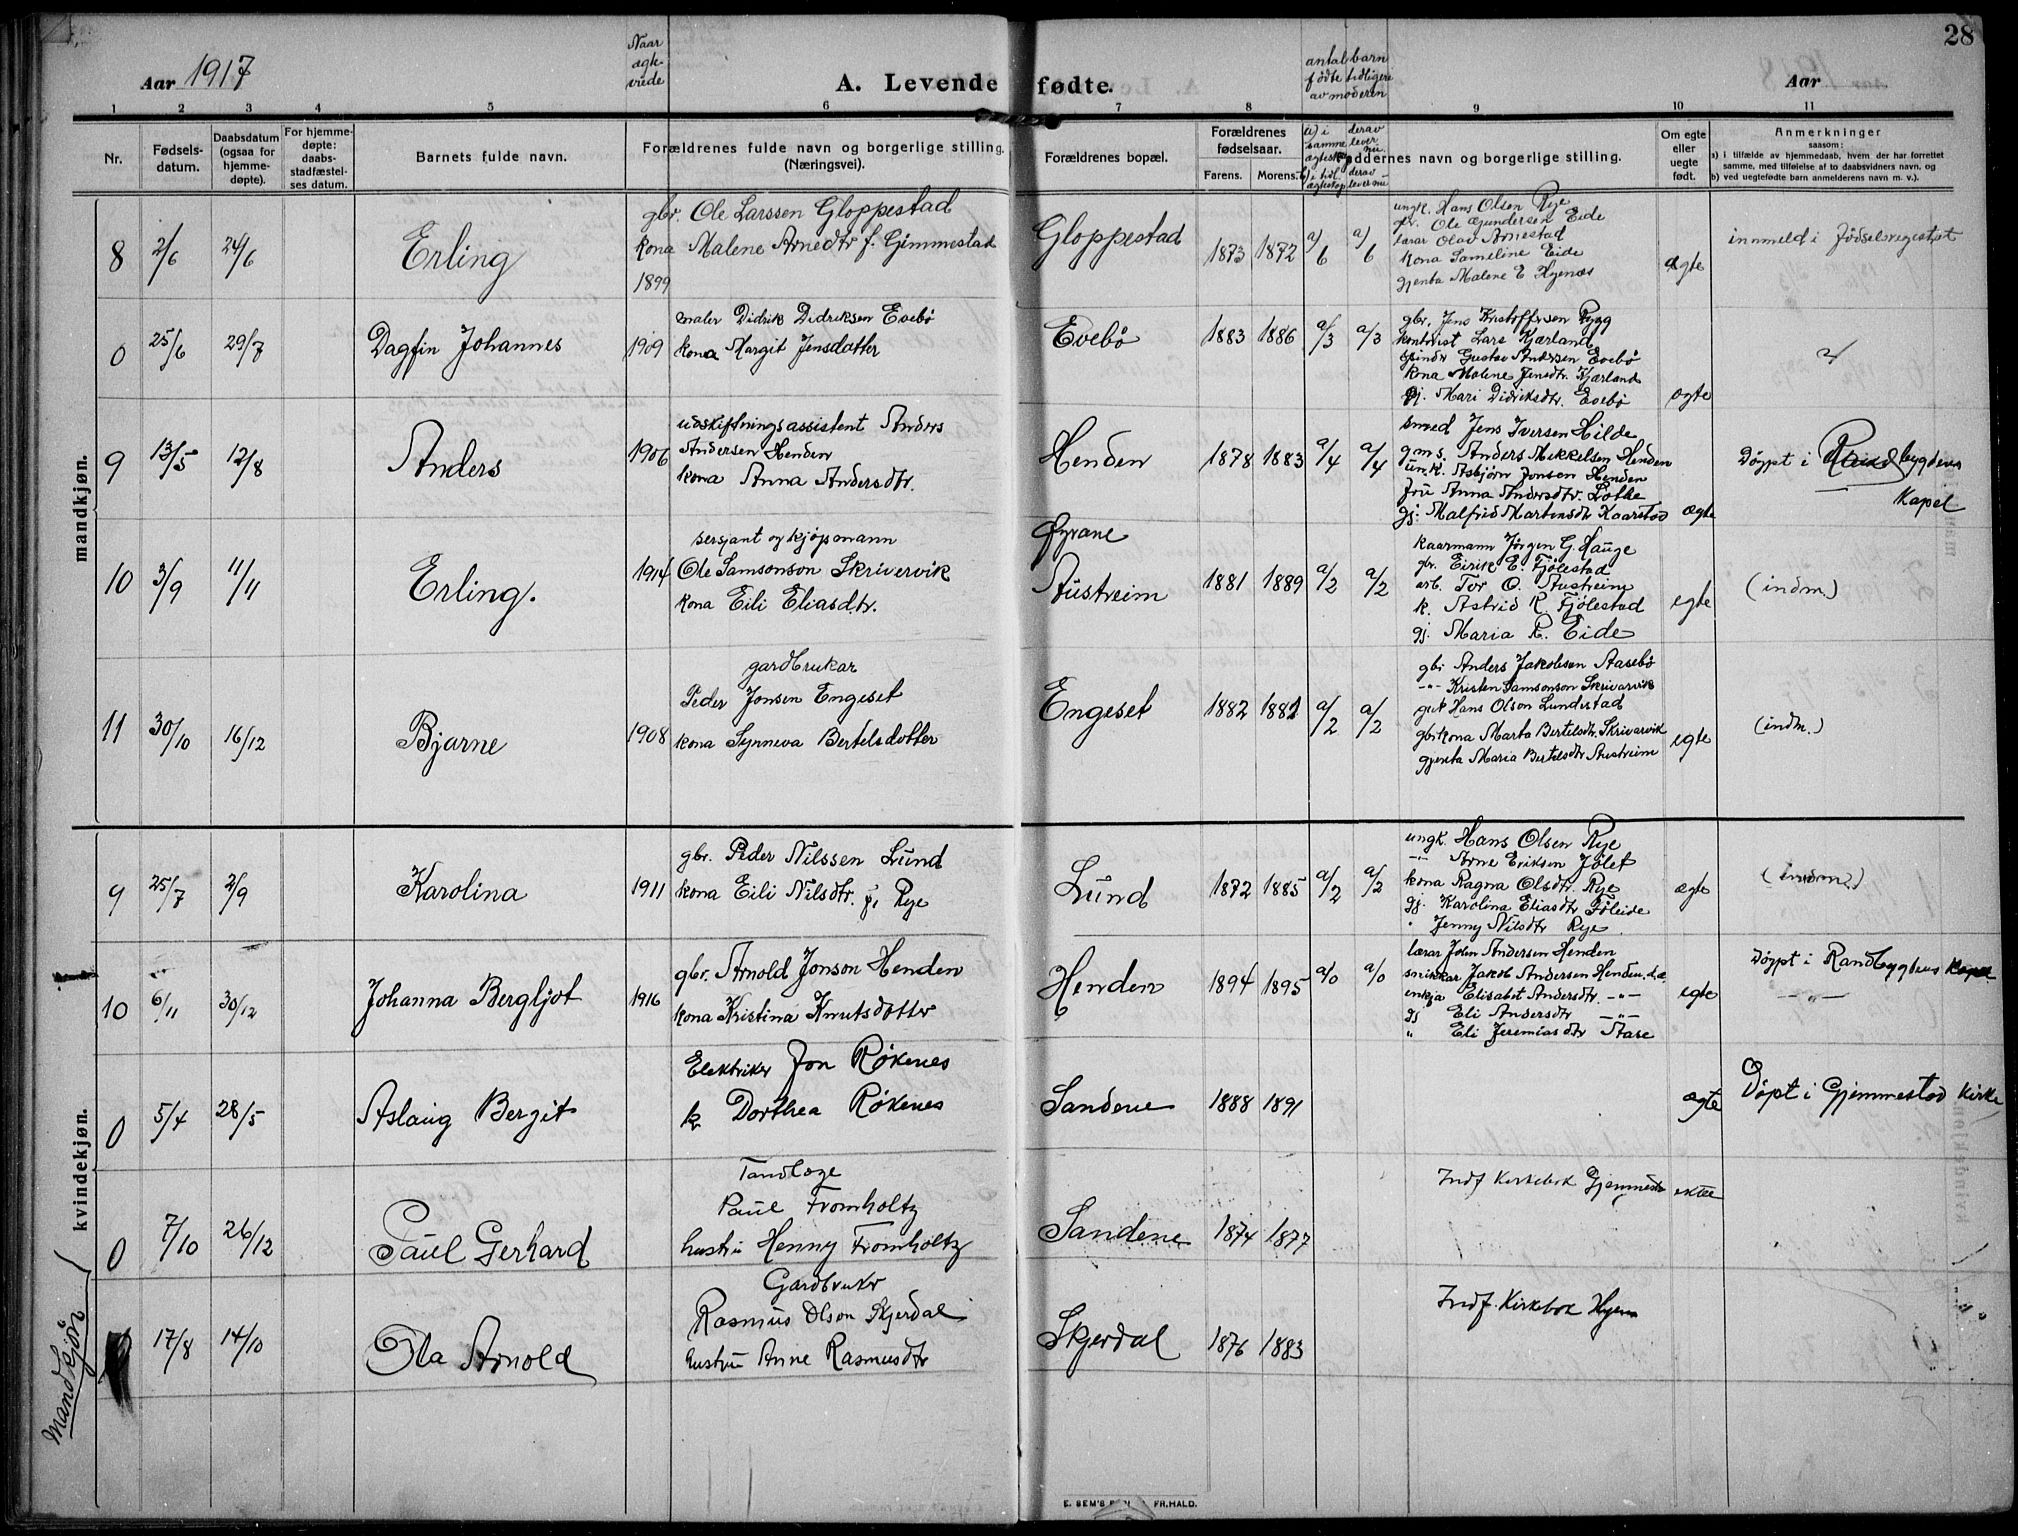 28
Aar 1917
Naar
egte-
viede
A. Levende fødte.
antal barn
fødte tidligere
av moderen
Aar
1 2 3 4 5 6 7 8 9 10 11
Nr.
Fødsels-
datum.
Daabsdatum
(ogsaa for
hjemme-
døpte).
For hjemme-
døpte:
daabs-
stadfæstel-
ses datum.
Barnets fulde navn.
Forældrenes fulde navn og borgerlige stilling.
(Næringsvei).
Forældrenes bopæl.
Forældrenes
fødselsaar.
Farens. Morens.
a) i
samme
egtesk.
b) i tidl.
egteskap
derav
lever
nu.
derav
lever nu
Faddernes navn og borgerlige stilling.
Om egte
eller
uegte
født.
Anmerkninger
saasom:
a) i tilfælde av hjemmedaab, hvem der har forrettet
samme, med tilføielse af to daabsvidners navn, og
b) ved uegtefødte barn anmelderens navn m. v.).
mandkjøn.
8 2/6 24/6 Erling
1899
gbr. Ole Larssen Gloppestad
kona Malene Arnedtr f. Gimmestad
Gloppestad 1873 1872 a/6 a/6
ungk. Hans Olsen Rye
gbr. Ole Gundersen Eide
lærar Olav Arnestad
kona Sameline Eide
gjenta Malene E Hyenæs
egte
innmeld i fødselsregistret
0 25/6 29/7 Dagfin Johannes 1909
maler Didrik Didriksen Evebø
kona Margit Jensdatter
Evebø 1883 1886 a/3 a/3
gbr. Jens Kristoffersen Rygg
kontorist Lars Kjærland
Gustav Andersen Evebø
kona Malene Jensdtr. Kjærland
gj. Mari Didriksdtr. Evebø
egte
9 13/5 12/8 Anders 1906
udskiftningsassistent Anders
Andersen Henden
kona Anna Andersdtr.
Henden 1878 1883 a/4 a/4
smed Jens Iversen Hilde
gms. Anders Mikkelsen Henden
unk. Asbjørn Jonsen Henden
fru Anna Andersdtr. Lothe
gj. Malfrid Martinsdtr Kaarstad
egte
Døypt i Randbygdens
Kapel
10 3/9 11/11 Erling. 1914
sersjant og kjøpmann
Ole Samsonson Skrivervik
kona Eili Eliasdtr.
Øyrane
Austreim 1881 1889 a/2 a/2
kaarmann Jørgen G. Hauge
gbr. Eirik E. Fjølestad
arb. Tor O. Austreim
k. Astrid R. Fjølestad
gj. Maria R. Eide
egte
(indm.)
11 30/10 16/12 Bjarne 1908
gardbrukar
Peder Jonsen Engeset
kona Synneva Bertelsdotter
Engeset 1882 1881 a/2 a/2
gbr Anders Jakobsen Aasebø
-"- Kristen Samsonson Skrivarvik
gut Hans Olson Lundestad
gbrkona Marta Bertelsdtr. Skrivarvik
gjenta Maria Bertelsdtr Austreim
egte
(indm.)
kvindekjøn.
9 25/7 2/9 Karolina 1911
gbr. Peder Nilssen Lund
kona Eili Nilsdtr. f. Rye
Lund 1872 1885 a/2 a/2
ungk. Hans Olsen Rye
-"- Arne Eriksen Jølet
kona Ragna Olsdtr. Rye
gj. Karolina Eliasdtr Føleide
" Jenny Nilsdtr Rye
egte
(indm.)
10 6/11 30/12 Johanna Bergljot 1916
gbr. Arnold Jonson Henden
kona Kristina Knutsdotter
Henden 1894 1895 a/0 a/0
lærar John Andersen Henden
snikkar Jakob Andersen Henden, d.æ.
enkja Elisabet Andersdtr. -"-
gj Eli Andersdtr -"-
" Eli Jeremiasdtr Aase
egte
Døypt i Randbygdens Kapel
-"-
0 5/4 28/5 Aslaug Bergit
Elektriker Jon Røkenes
k Dorthea Røkenes
Sandene 1888 1891
egte
Døpt i Gjemmestad Kirke
0 7/10 26/12 Paul Gerhard
Tandlæge
Paul Fromholtz
hustru Henny Fromholtz
Sandene 1874 1877
Indf Kirkebok Gjemmest
ekte
Mandkjøn
17/8 14/10 Ola Arnold
Gardbruker
Rasmus Olson Skjerdal
hustru Anne Rasmusdtr
Skjerdal 1876 1883
Indf. Kirkebok Hyen